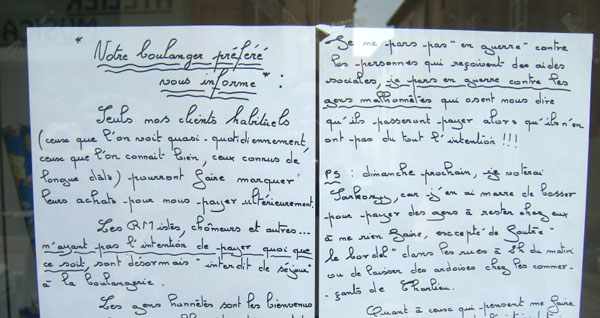 ATELIER
MUSICA
* Notre boulanger préféré
vous informe * :
Seuls nos clients habituels
(ceux que l'on voit quasi-quotidiennement,
ceux que l'on connait bien, ceux connus de
longue date) pourront faire marquer
leurs achats pour nous payer ultérieurement.
Les RMistes, chômeurs et autres...
n'ayant pas l'intention de payer quoi que
ce soit, sont désormais interdit de séjour
à la boulangerie.
Les gens honnêtes sont les bienvenus
Je me pars pas "en guerre" contre
les personnes qui reçoivent des aides
sociales, je pars en guerre contre les
gens malhonnêtes qui osent nous dire
qu'ils passeront payer alors qu'ils n'en
ont pas du tout l'intention !!!
PS : dimanche prochain, je voterai
Sarkozy, car j'en ai marre de bosser
pour payer des gens à rester chez eux
à ne rien faire, excepté de foutre
"le bordel" dans les rues à 2h du matin
ou de laisser des ardoises chez les commer-
çants de Charlieu.
Quant à ceux qui pensent me faire